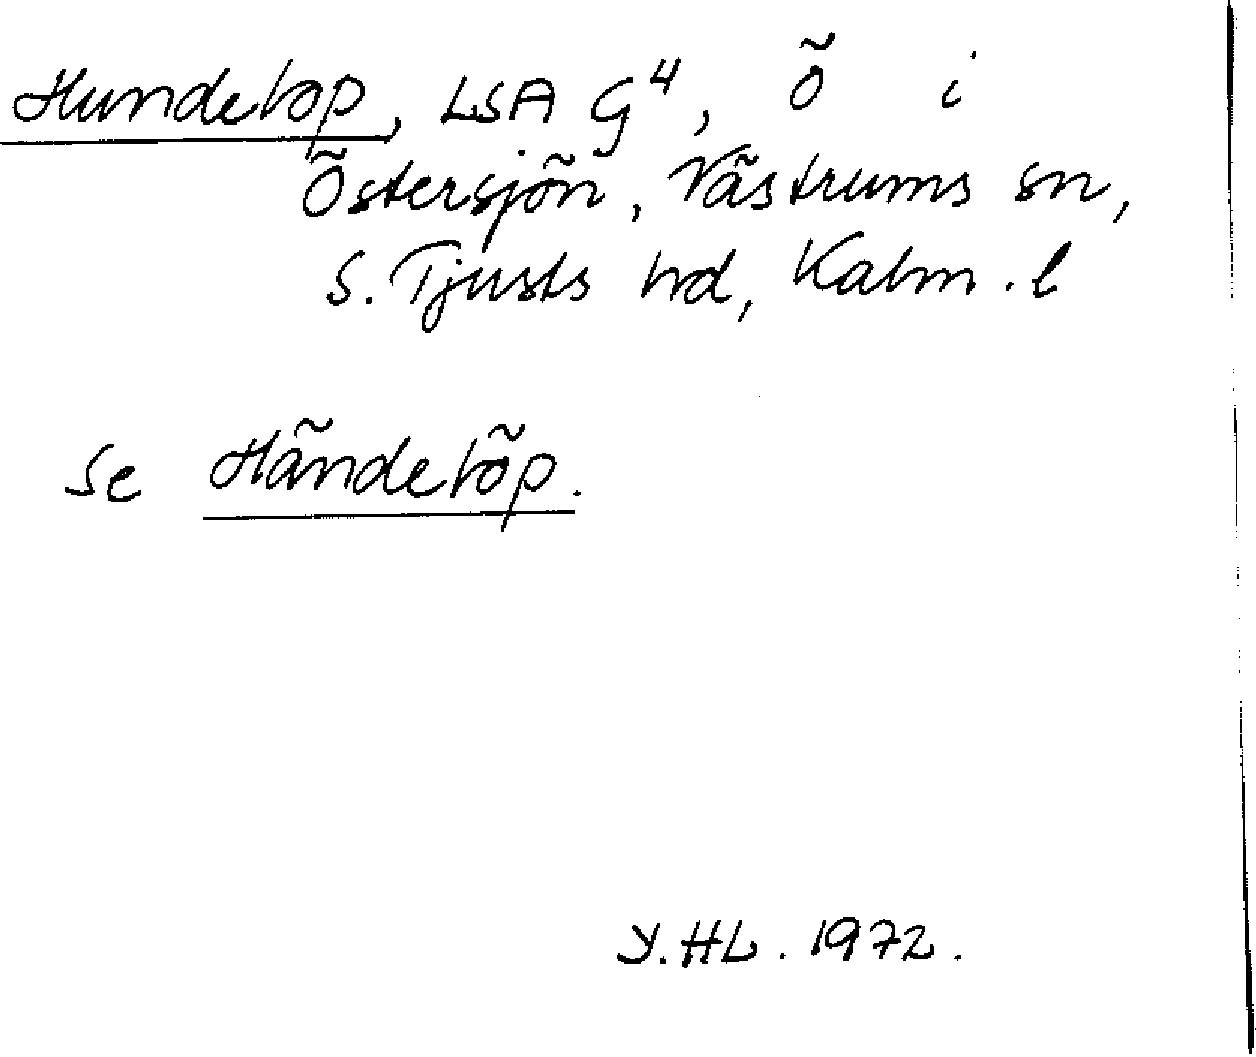 Hundelop, LSA G⁴, ö i
Östersjön, Västrums sn,
S. Tjusts hd, Kalm. l
se Händelöp.
Y.HL. 1972.